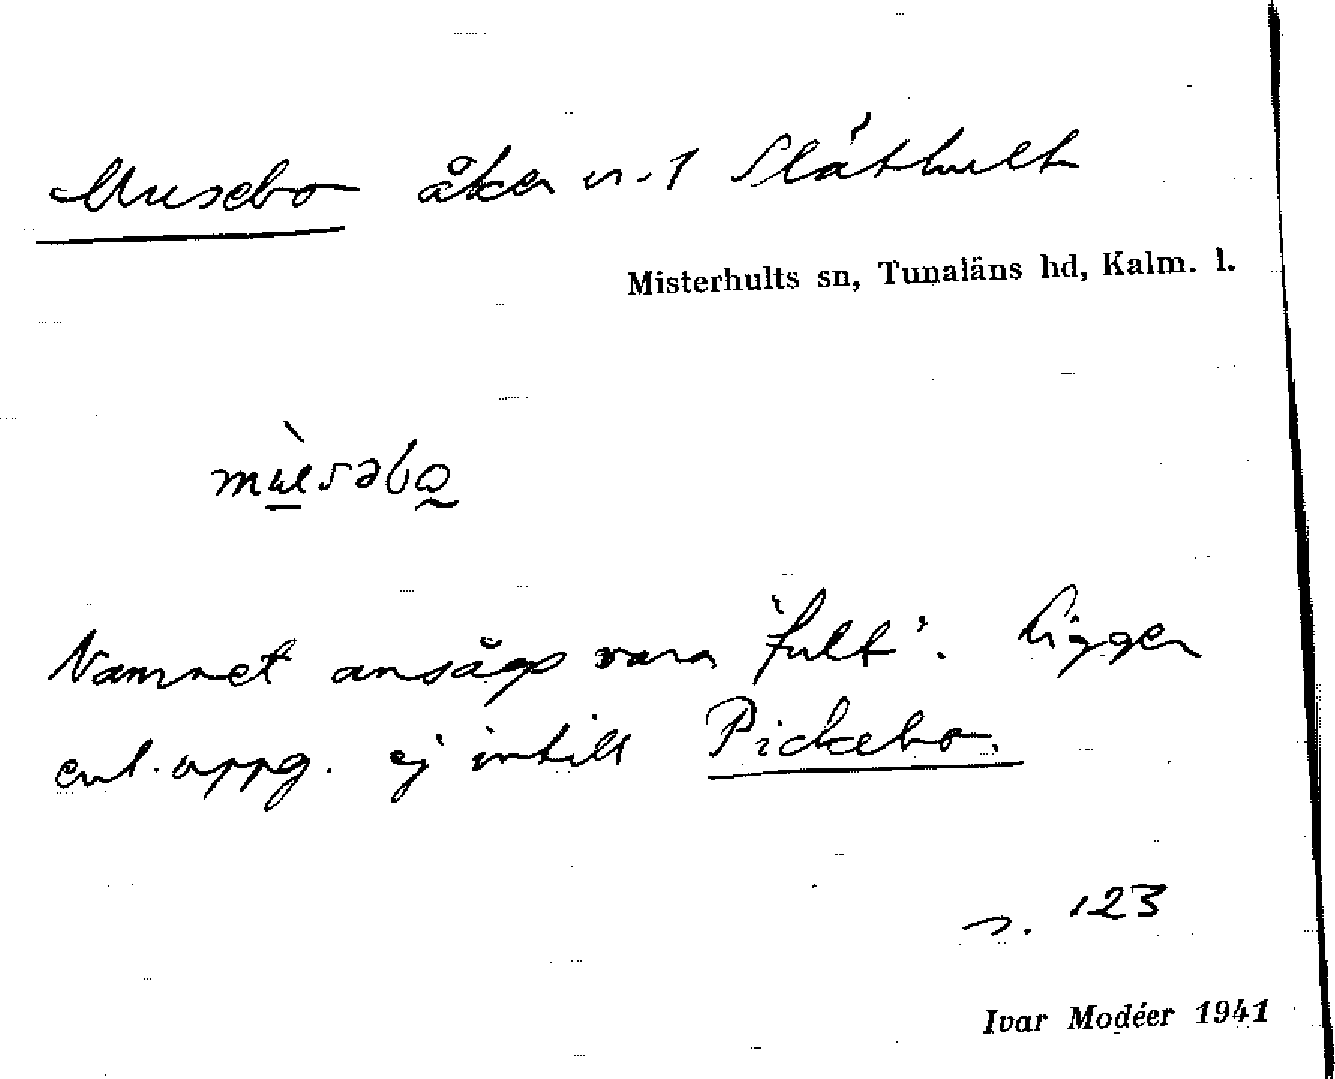 Musebo åker nr 1 Slåthult
Misterhults sn, Tunaläns hd, Kalm. l.
mù̲səbo̰
Namnet ansågs vara 'fult'. Ligger
enl. uppg. ej intill Pickebo.
s. 123
Ivar Modéer 1941